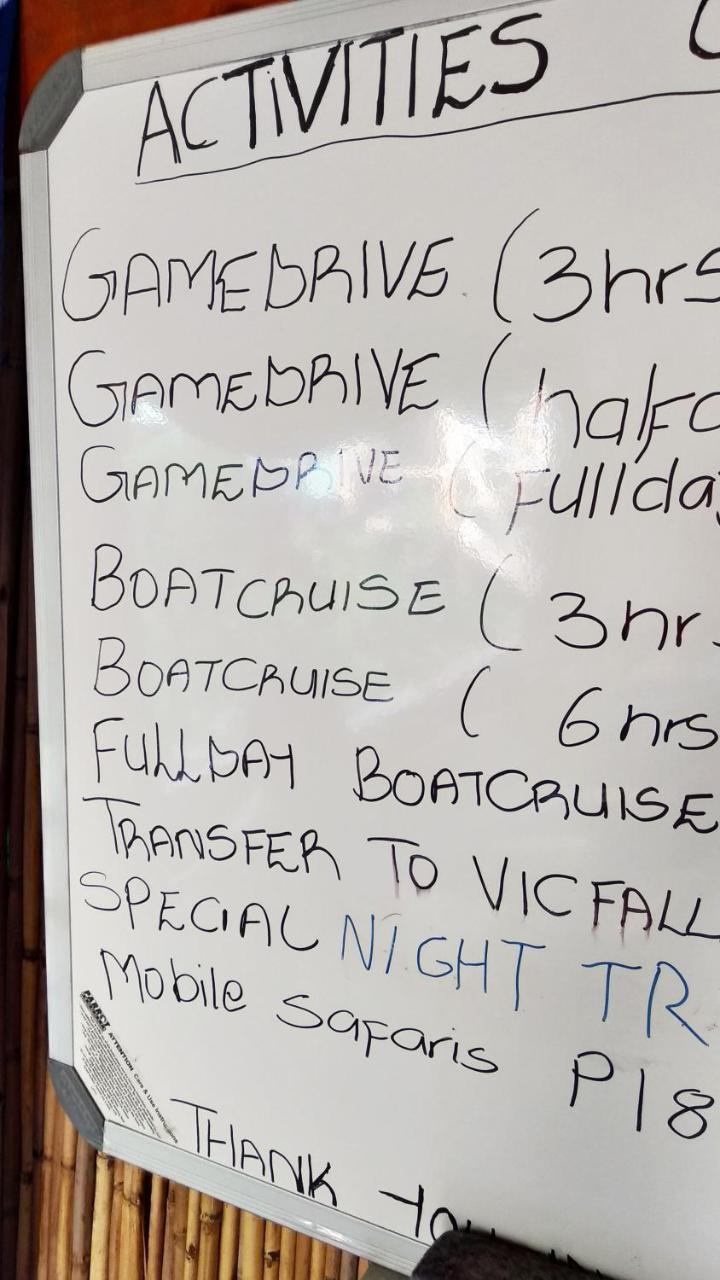 ACTIVITIES
GAMEDRIVE (3hrs
GAMEDRIVE (halfd
GAMEDRIVE (Fullday
BOATCRUISE (3hr
BOATCRUISE (6hrs
FULLDAY BOATCRUISE
TRANSFER TO VICFALL
SPECIAL NIGHT TR
Mobile Safaris P18
PARROT
ATTENTION Care & Use Instructions
THANK You